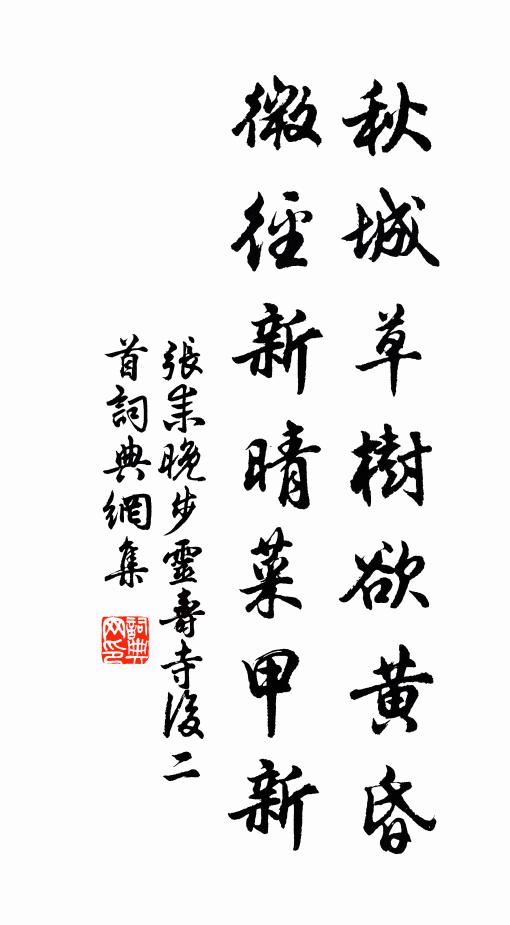 秋城草樹欲黄昏
微徑新晴菜甲新
張耒晚步靈壽寺後二
首詞典網集
詞典
网印